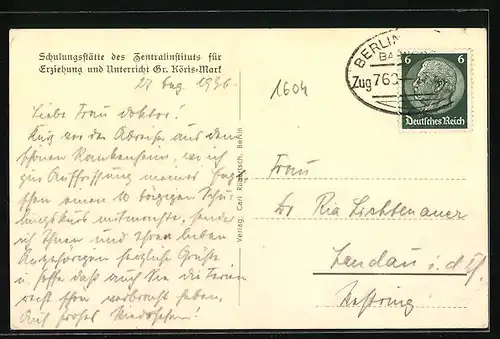 Schulungsstätte des Zentralinstituts für
Erziehung und Unterricht Gr. Köris-Mark
27 Aug. 1936
Liebe Frau Doktor!
Kurz vor der Abreise aus dem
schönen wo ich
zur Auffrischung meiner
einen 10 tägigen Schu-
lungskurs mitmachte, sende
ich Ihnen und Ihren lieben
Angehörigen herzliche Grüße
u. hoffe daß auch Sie die Ferien
recht schön verbracht haben.
Auf frohes Wiedersehen!
Verlag: Carl Berlin
1604
BERLIN
Zug 763
6 6
Deutsches Reich
Frau
Dr Ria Lichtenauer
Landau i. d. Pf.